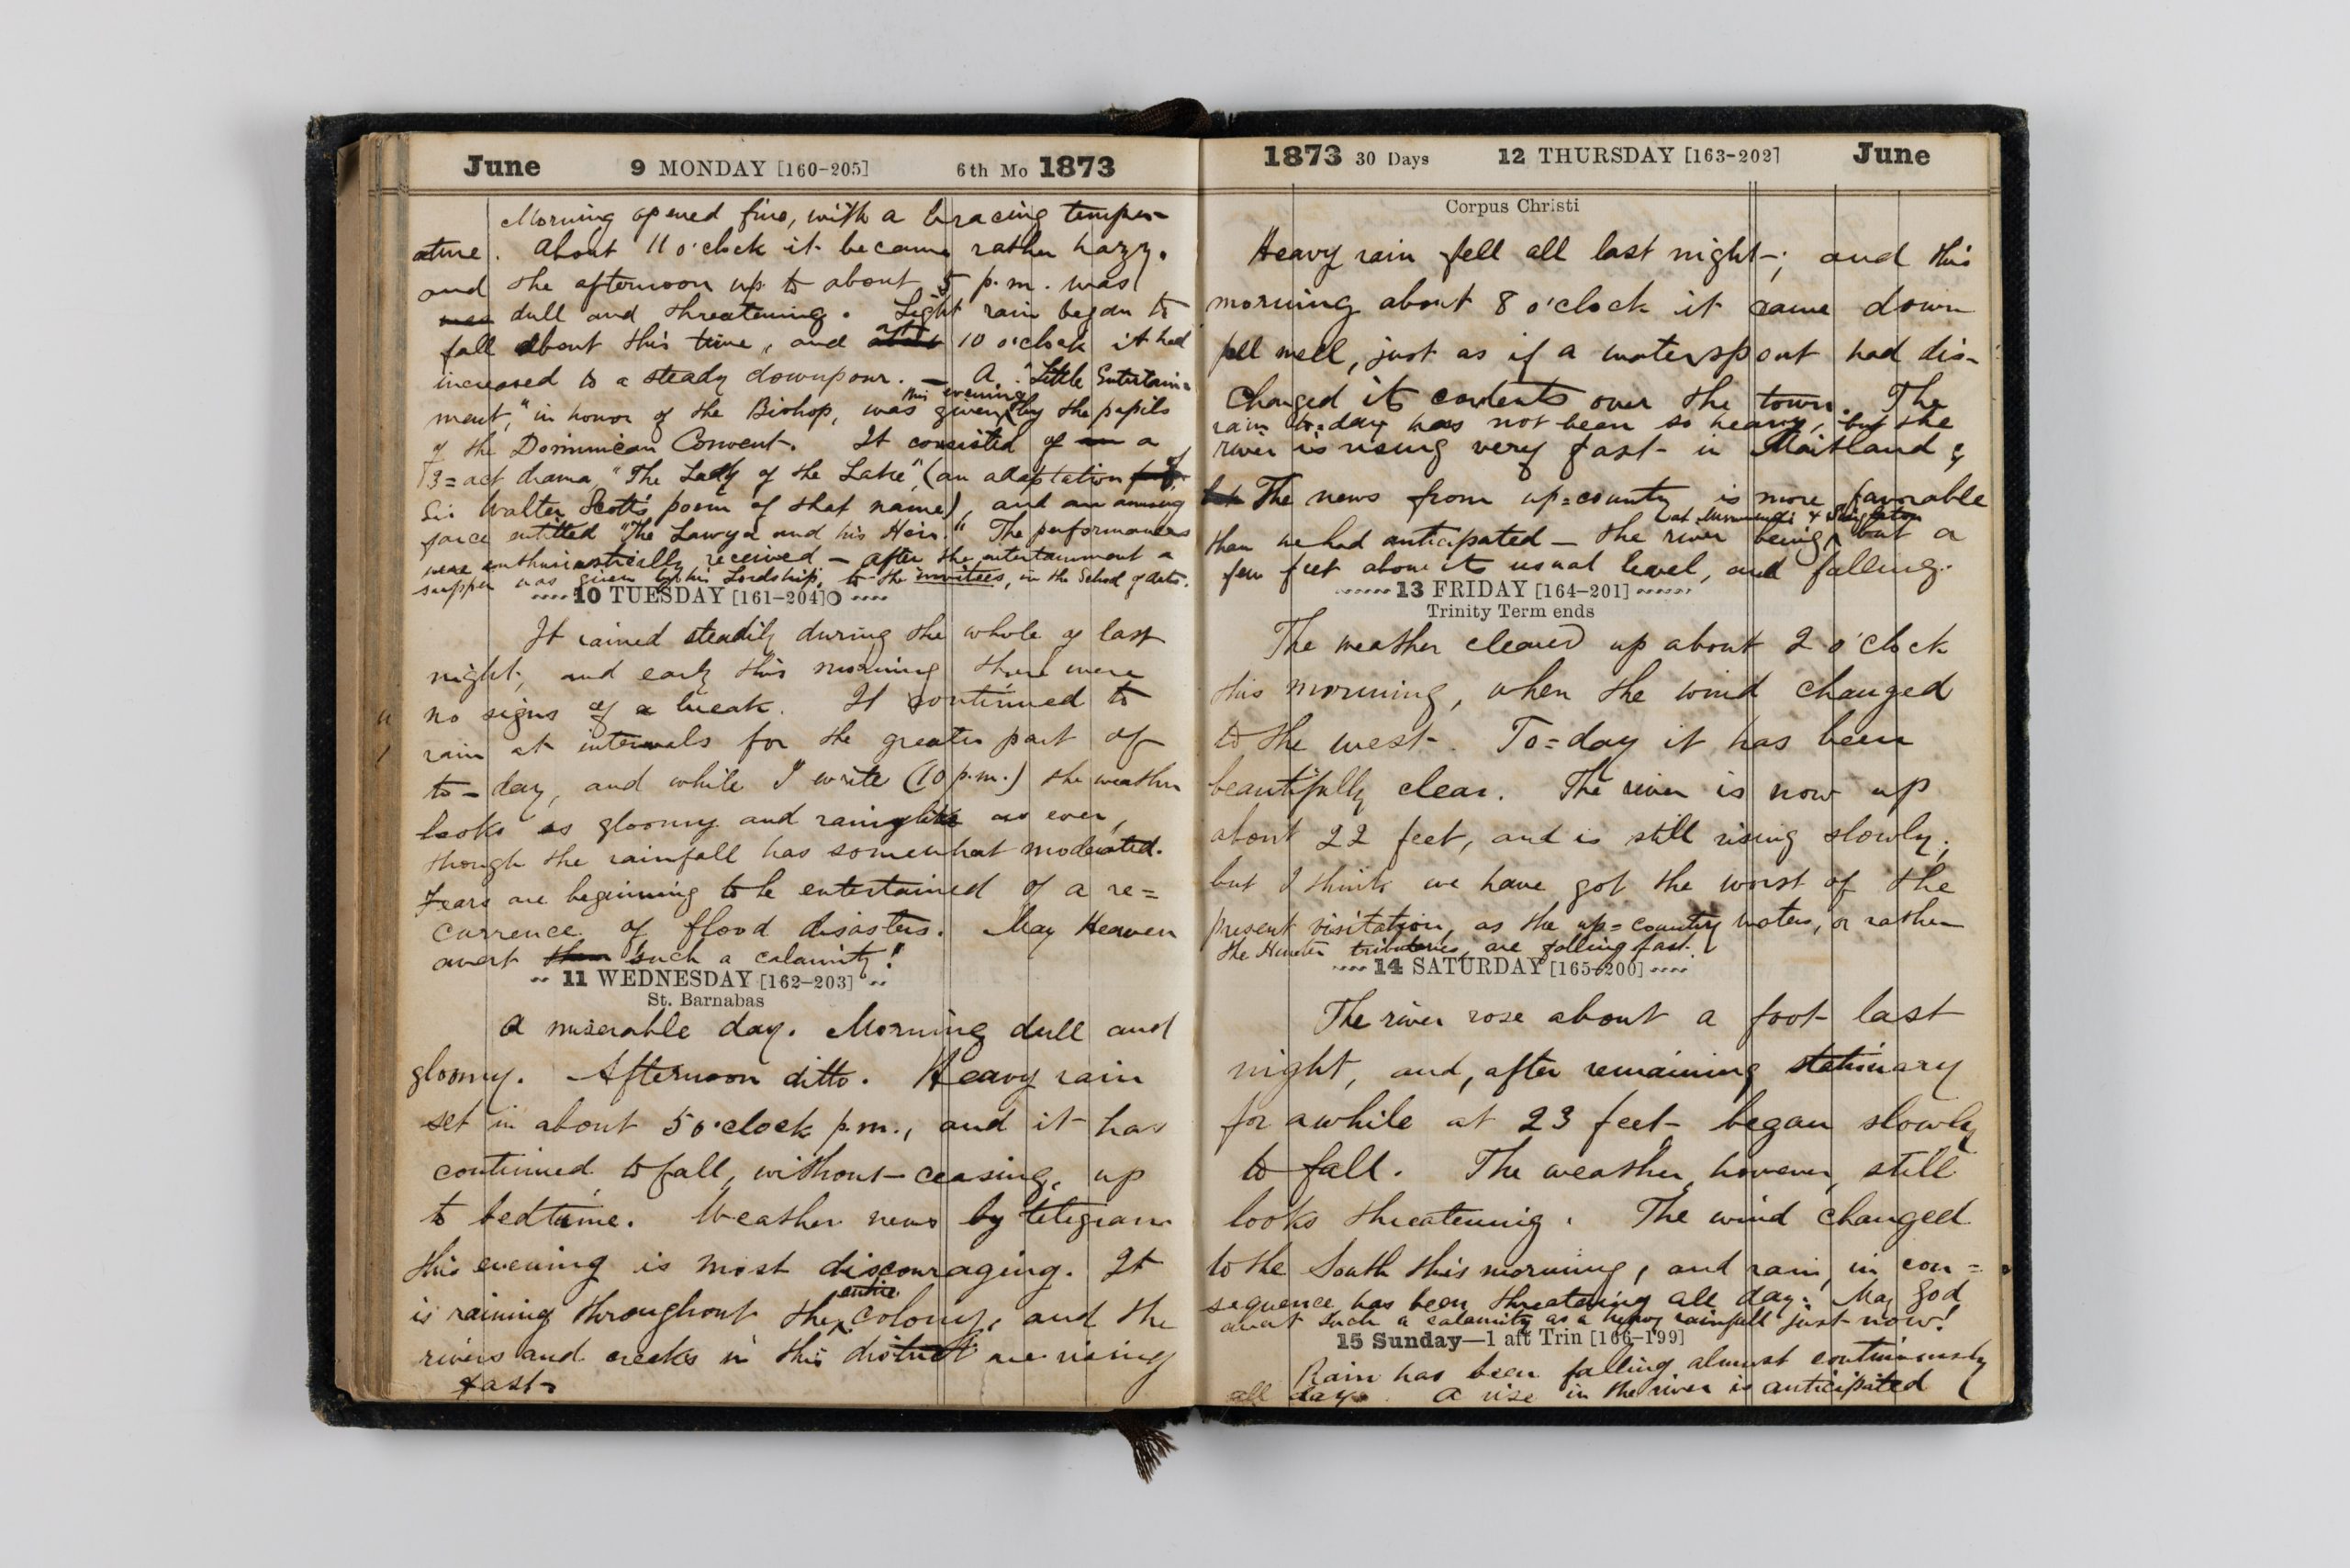 June 9 MONDAY [160-205] 6th Mo 1873
Morning opened fine, with a bracing temper-
ature. About 11 o'clock it became rather hazy.
and the afternoon up to about 5 p.m. was
dull and threatening. Light rain began to
fall about this time, and after about 10 o'clock it had
increased to a steady downpour. — A "Little Entertain-
this evening
ment," in honor of the Bishop, was given by the pupils
of the Dominican Convent. It consisted of an a
3=act drama, "The Lady of the Lake", (an adaptation of
Sir Walter Scott's poem of that name), and an amusing
farce entitled "The Lawyer and his Heir." The performances
were enthusiastically received — After the entertainment a
supper was given by his Lordship, to the invitees, in the School of Arts.
10 TUESDAY [161-204]
It rained steadily during the whole of last
night, and early this morning there were
no signs of a break. It continued to
rain at intervals for the greater part of
to-day, and while I write (10 p.m.) the weather
looks as gloomy and rainylike as ever,
though the rainfall has somewhat moderated.
Fears are beginning to be entertained of a re=
currence of flood disasters. May Heaven
avert such a calamity!
11 WEDNESDAY [162-203]
St. Barnabas
A miserable day. Morning dull and
gloomy. Afternoon ditto. Heavy rain
set in about 5 o'clock p.m., and it has
continued to fall, without ceasing, up
to bedtime. Weather news by telegram
this evening is most discouraging. It
entire
is raining throughout the colony, and the
rivers and creeks in this district are rising
fast
1873 30 Days 12 THURSDAY [163-202] June
Corpus Christi
Heavy rain fell all last night; and this
morning about 8 o'clock it came down
pell mell, just as if a waterspout had dis-
charged its contents over the town. The
rain to-day has not been so heavy, but the
river is rising very fast in Maitland;
The news from up=country is more favorable
at Murrurundi & Singleton
than we had anticipated — the river being but a
few feet above its usual level, and falling.
13 FRIDAY [164-201]
Trinity Term ends
The weather cleared up about 2 o'clock
this morning, when the wind changed
to the west. To=day it has been
beautifully clear. The river is now up
about 22 feet, and is still rising slowly;
but I think we have got the worst of the
present visitation, as the up=country waters, or rather
the Hunter tributaries, are falling fast.
14 SATURDAY [165-200]
The river rose about a foot last
night, and, after remaining stationary
for awhile at 23 feet began slowly
to fall. The weather, however, still
looks threatening. The wind changed
to the South this morning, and rain, in con=
sequence has been threatening all day. May God
avert such a calamity as a heavy rainfall just now!
15 Sunday—1 aft Trin [166-199]
Rain has been falling almost continuously
all day. A rise in the river is anticipated